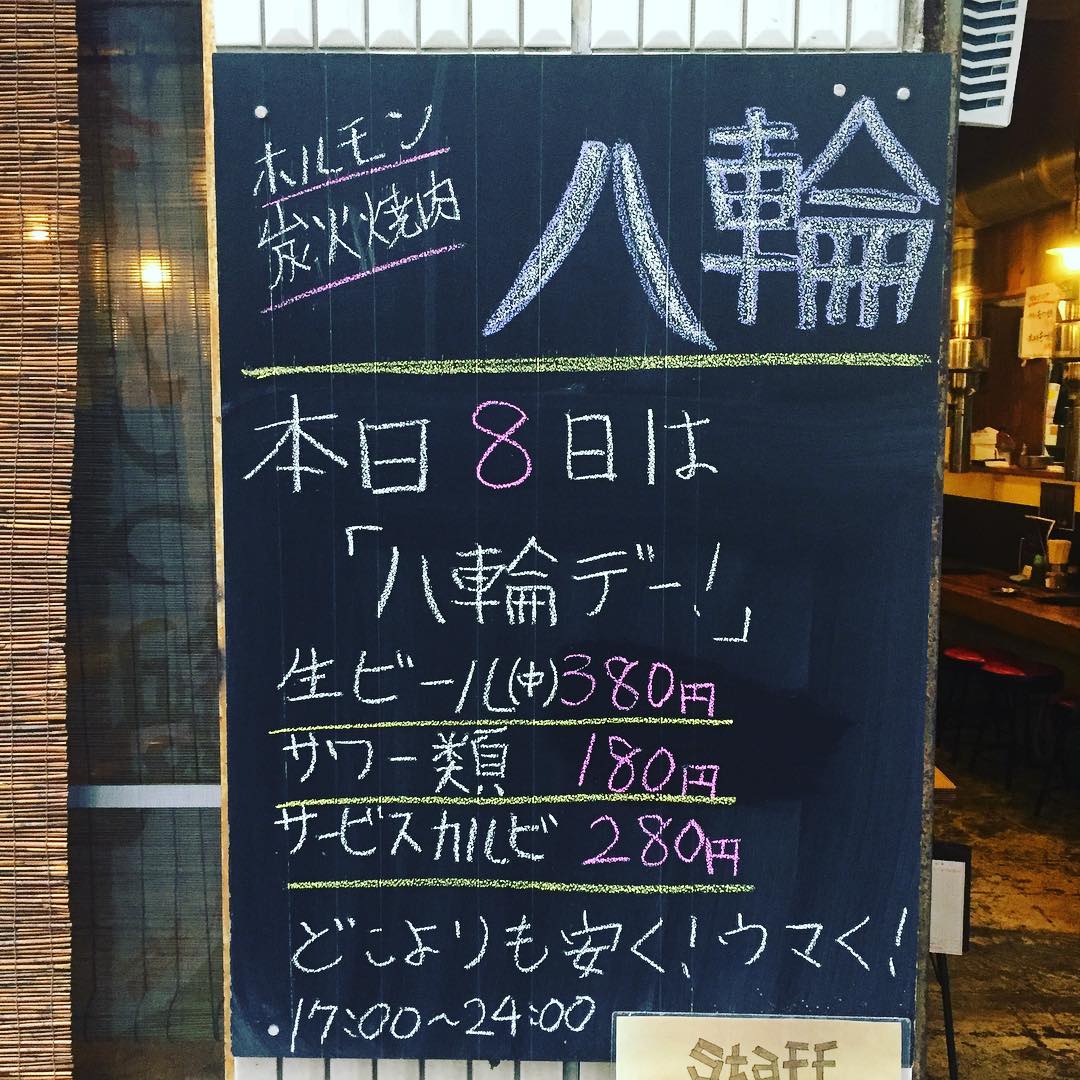 ホルモン
炭火焼肉
八輪
本日8日は
「八輪デー!」
生ビール(中)380円
サワー類 180円
サービスカルビ 280円
どこよりも安く!ウマく!
17:00~24:00
Staff